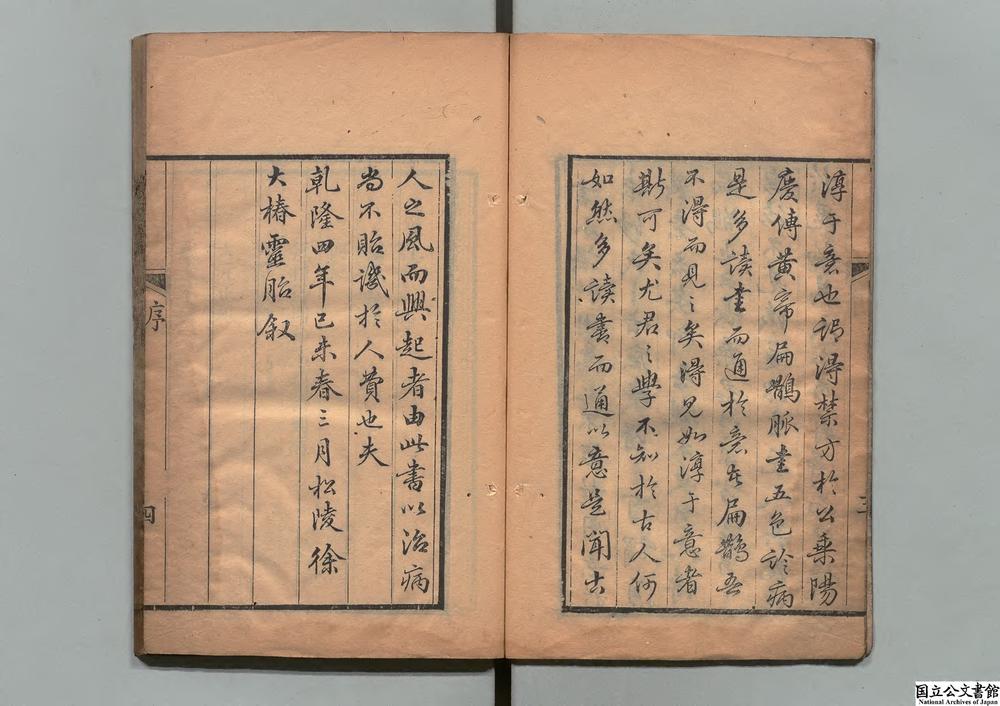 淳于意也謂得禁方於公乘陽
慶傳黃帝扁鵲脈書五色診病
是多讀書而通於意也扁鵲吾
不得而見之矣得見如淳于意者
斯可矣尤君之學不知於古人何
如然多讀書而通以意是聞古
三
人之風而興起者由此書以治病
尚不貽譏於人費也夫
乾隆四年己未春三月松陵徐
大椿靈胎敘
序
四
国立公文書館
National Archives of Japan